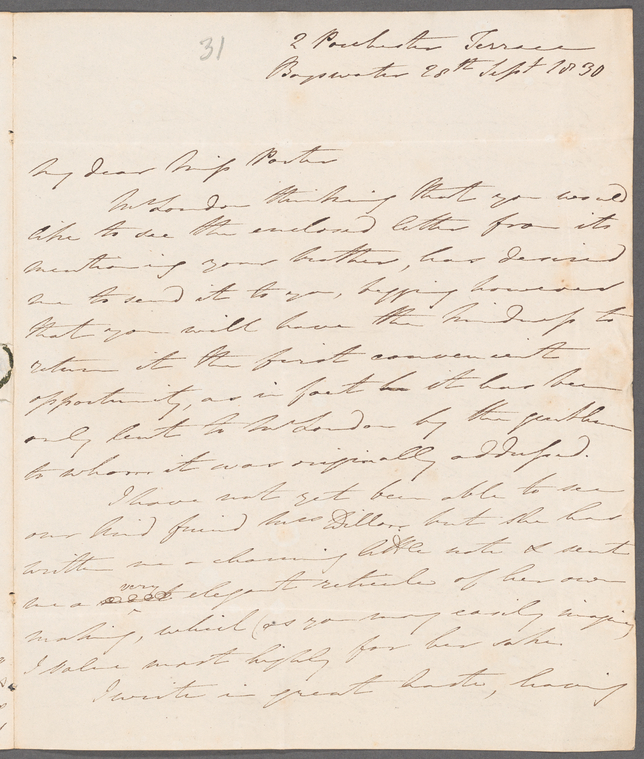 31
2 Porchester Terrace
Bayswater 28th Sept 1830
My dear Miss Porter
Mr Loudon thinking that you would
like to see the enclosed letter from its
mentioning your brother, has desired
me to send it to you, begging however
that you will have the kindness to
return it the first convenient
opportunity, as in fact it has been
only lent to Mr Loudon by the gentleman
to whom it was originally addressed.
I have not yet been able to see
our kind friend Miss Dillon, but she has
written me a charming little note & sent
me a very elegant reticule of her own
making, which (as you may easily imagine)
I value most highly for her sake
I write in great haste, having